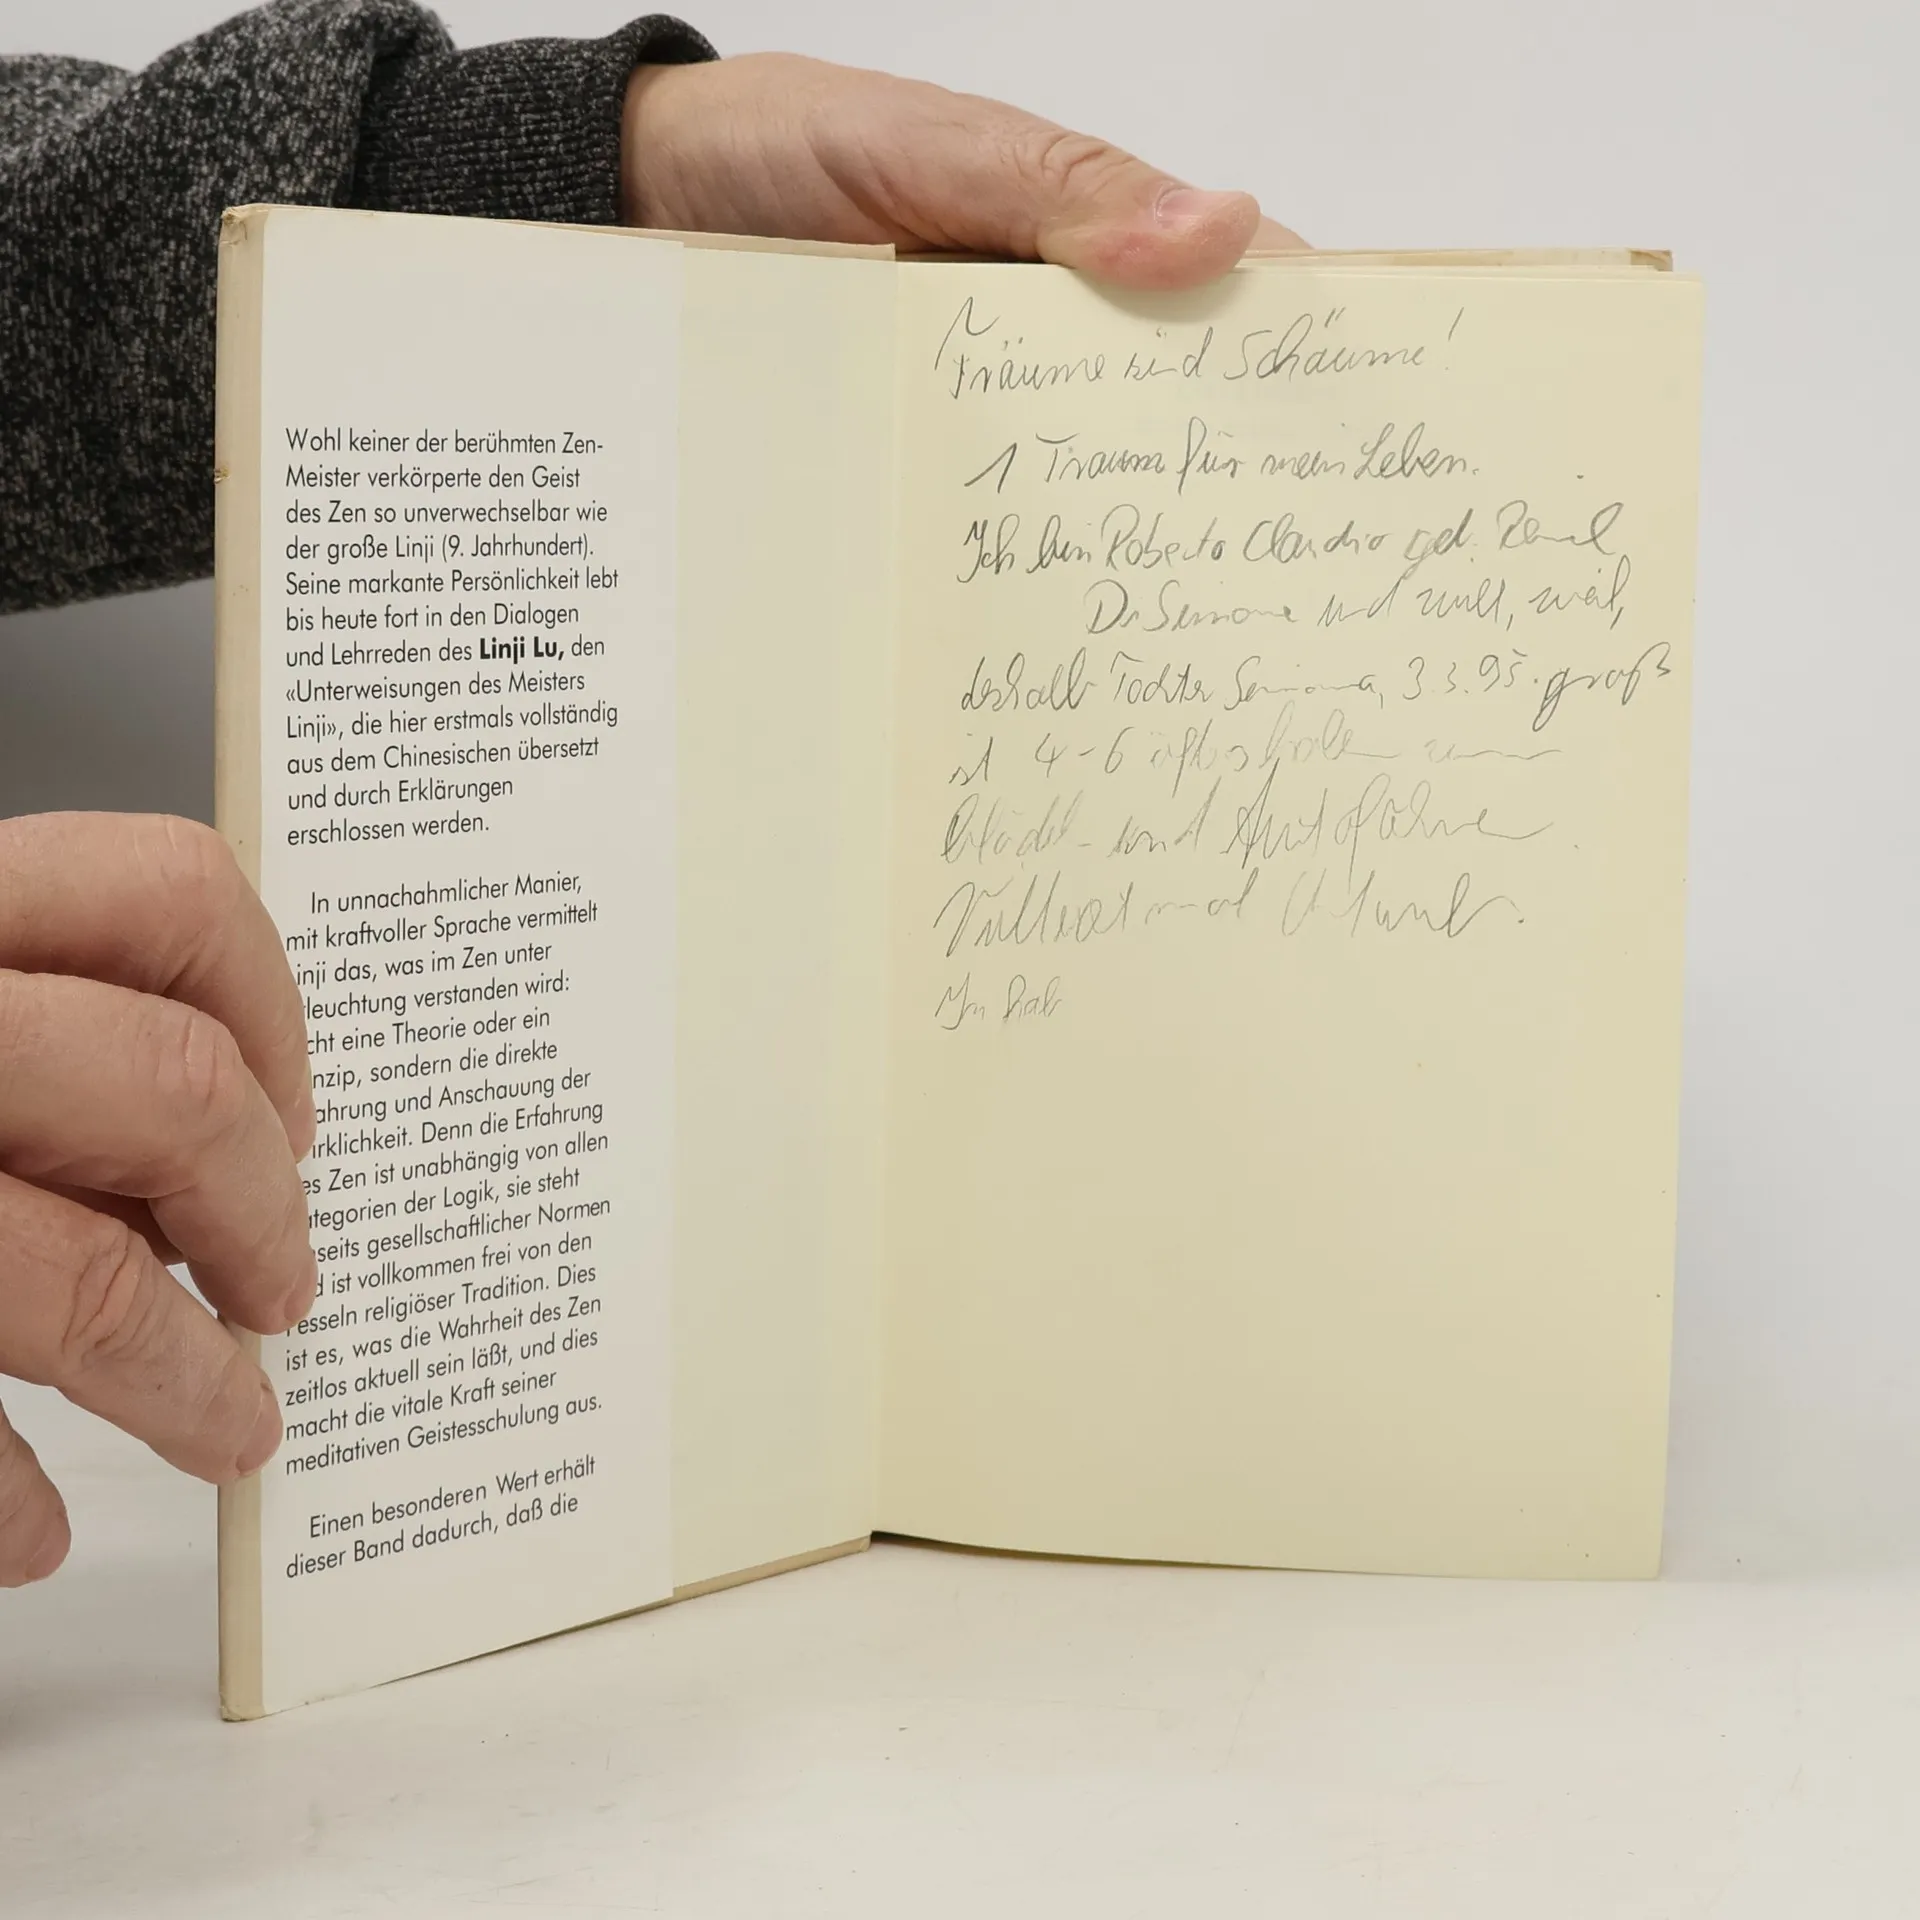 Wohl keiner der berühmten Zen-
Meister verkörperte den Geist
des Zen so unverwechselbar wie
der große Linji (9. Jahrhundert).
Seine markante Persönlichkeit lebt
bis heute fort in den Dialogen
und Lehrreden des Linji Lu, den
«Unterweisungen des Meisters
Linji», die hier erstmals vollständig
aus dem Chinesischen übersetzt
und durch Erklärungen
erschlossen werden.
In unnachahmlicher Manier,
mit kraftvoller Sprache vermittelt
inji das, was im Zen unter
leuchtung verstanden wird:
cht eine Theorie oder ein
nzip, sondern die direkte
ahrung und Anschauung der
irklichkeit. Denn die Erfahrung
es Zen ist unabhängig von allen
tegorien der Logik, sie steht
seits gesellschaftlicher Normen
d ist vollkommen frei von den
esseln religiöser Tradition. Dies
ist es, was die Wahrheit des Zen
zeitlos aktuell sein läßt, und dies
macht die vitale Kraft seiner
meditativen Geistesschulung aus.
Einen besonderen Wert erhält
dieser Band dadurch, daß die
Träume sind Schäume!
1 Traum für mein Leben.
Ich bin Roberto Claudio
und will, weil,
deshalb Tochter 3.3.95. groß
ist 4-6
und
mal
hab